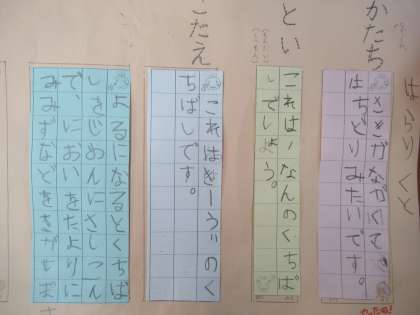 はらり くと
かたち
さきがながくて
はちどりみたいです。
とい
これは、なんのくちば
しでしょう。
こたえ
これはきーうぃのく
ちばしです。
よるになるとくちば
しをじめんにさしこん
で、においをたよりに
みみずなどを